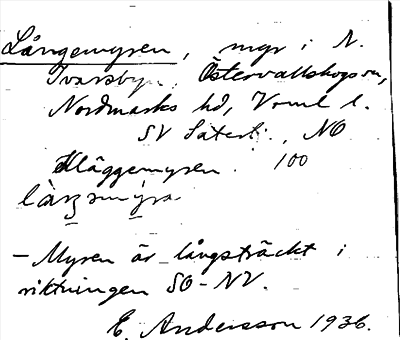 Långemyren, mgr i N.
Ivarsbyn. Östervallskogs sn,
Nordmarks hd, Vrml l.
SV Säterti., NO
Kläggemyren. 100
- Myren är långsträckt i
riktningen SO-NV.
E. Andersson 1936.